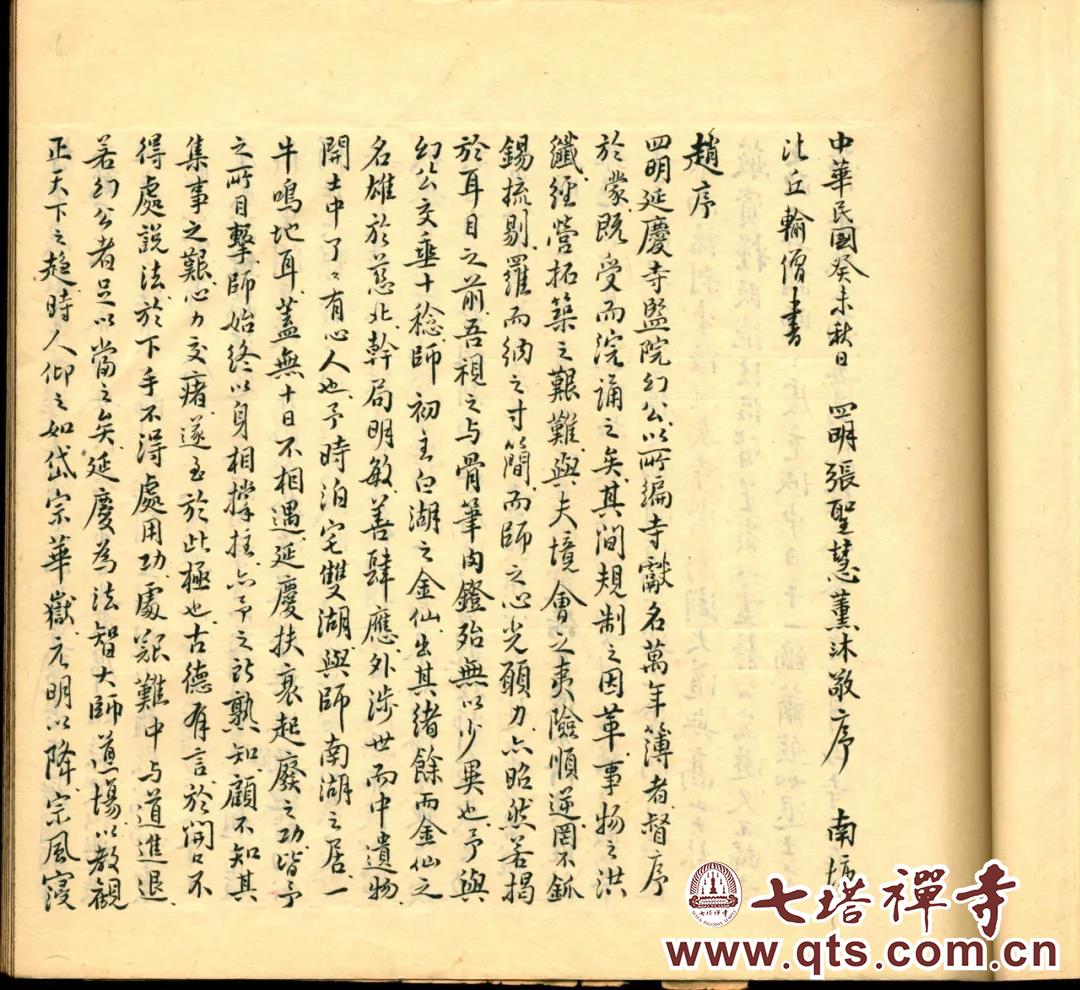 中華民國癸未秋日　四明張聖慧薰沐敬序　南
比丘輸僧書
趙序
四明延慶寺監院幻公以所編寺乘名萬年簿者督序
於蒙既受而浣誦之矣其間規制之因革事物之洪
纖經營拓築之艱難與夫境會之夷險順逆罔不
錫梳剔羅而納之寸簡而師之心光願力亦昭然若揭
於耳目之前吾視之与骨筆肉鐙殆無以少異也予與
幻公交垂十稔師初主白湖之金仙出其緒餘而金仙之
名雄於慈北幹局明敏善肆應外涉世而中遺物
開士中了々有心人也予時泊宅雙湖與師南湖之居一
牛鳴地耳蓋無十日不相遇延慶扶衰起廢之功皆予
之所目擊師始終以身相撐拄亦予之所熟知顧不知其
集事之艱心力交瘏遂至於此極也古德有言於開口不
得處說法於下手不得處用功處艱難中与道進退
若幻公者足以當之矣延慶為法智大師道場以教觀
正天下之趨時人仰之如岱宗華嶽元明以降宗風寖
七塔禪寺
www.qts.com.cn